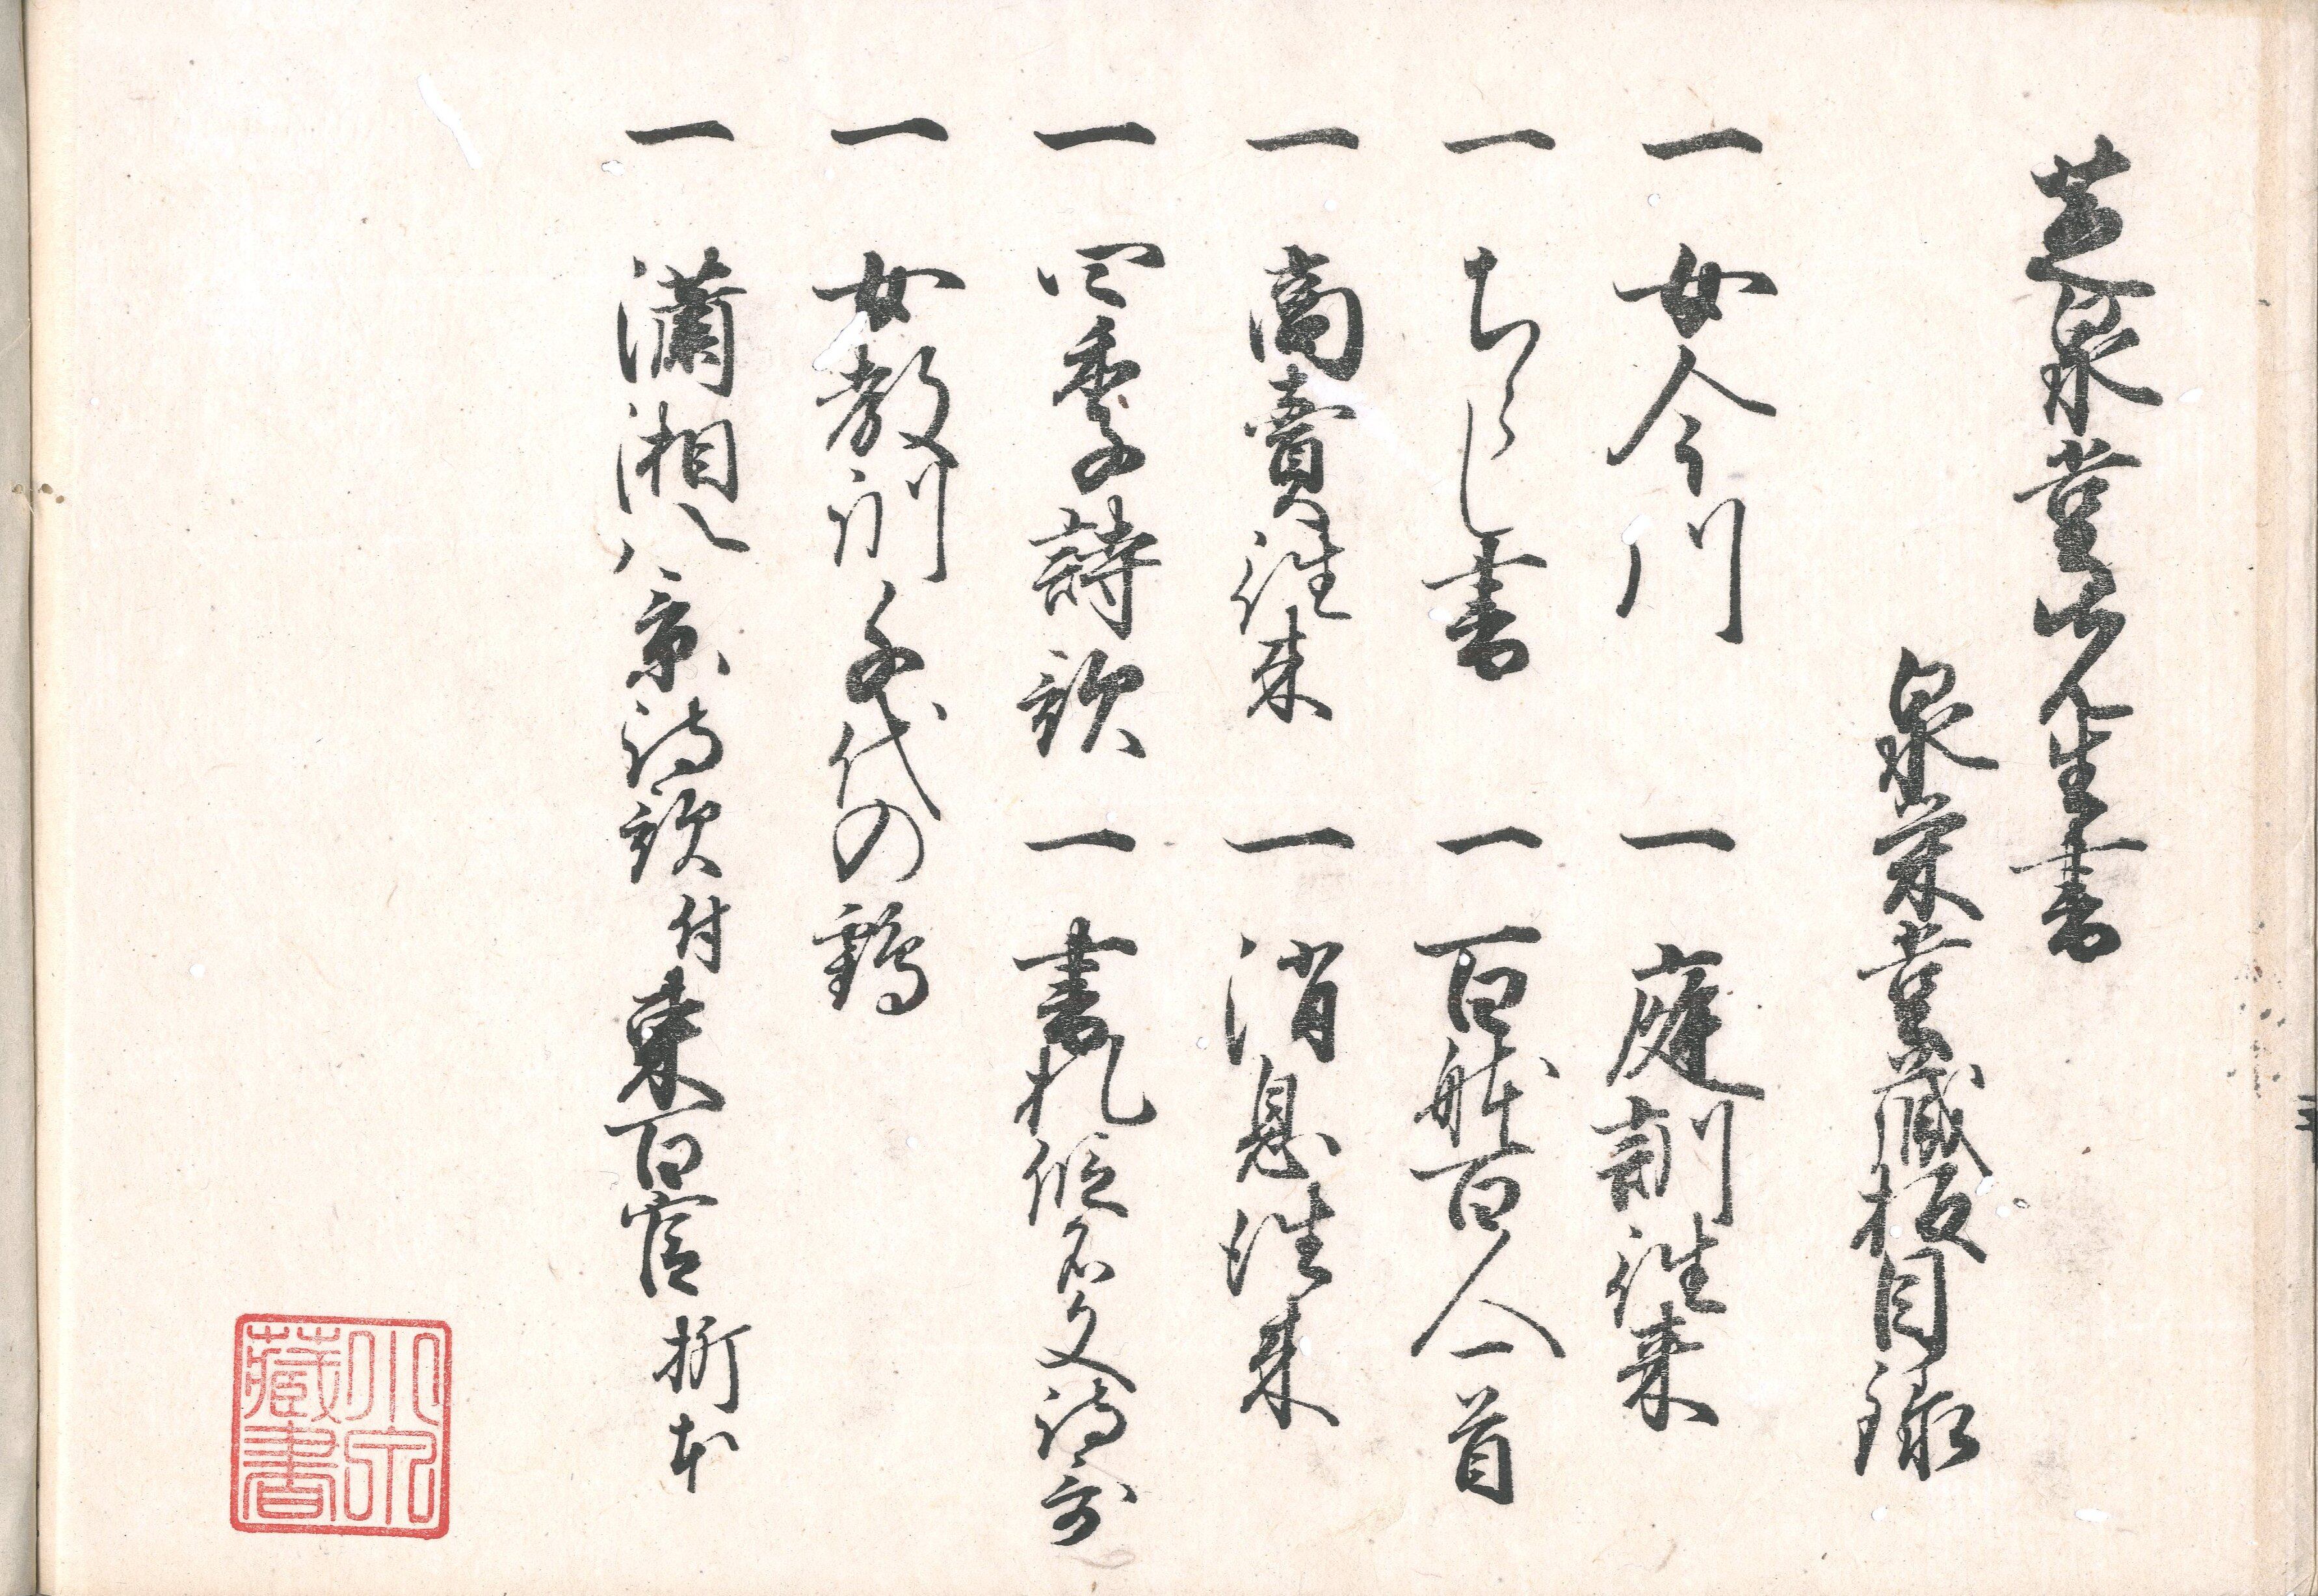 芝泉堂先生書
泉栄堂蔵板目録
一 女今川 一 庭訓往来
一 ちらし書 一 百舩百人一首
一 商賣往来 一 消息往来
一 四季詩歌 一 書札仮名文詩哥
一 女教訓千代の鶴
一 瀟湘八景詩歌付東百官折本
小泉藏書